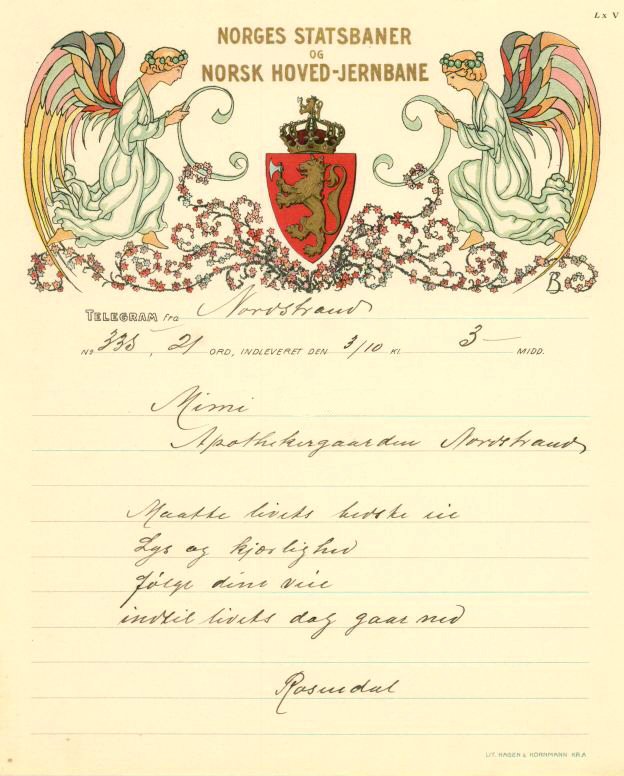 Lx V
NORGES STATSBANER
OG
NORSK HOVED-JERNBANE
TELEGRAM fra Nordstrand
No 335, 21 ORD, INDLEVERET DEN 3/10 Kl. 3 – MIDD.
Mimi
Apothekergaarden Nordstrand
Maatte livets bedste eie
Lys og kjærlighed
følge dine veie
indtil livets dag gaar ned
Rosendal
LIT. HAGEN & KORNMANN KR.A